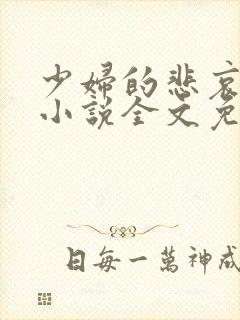 少婦的悲哀
小說全文免
日每一萬神成